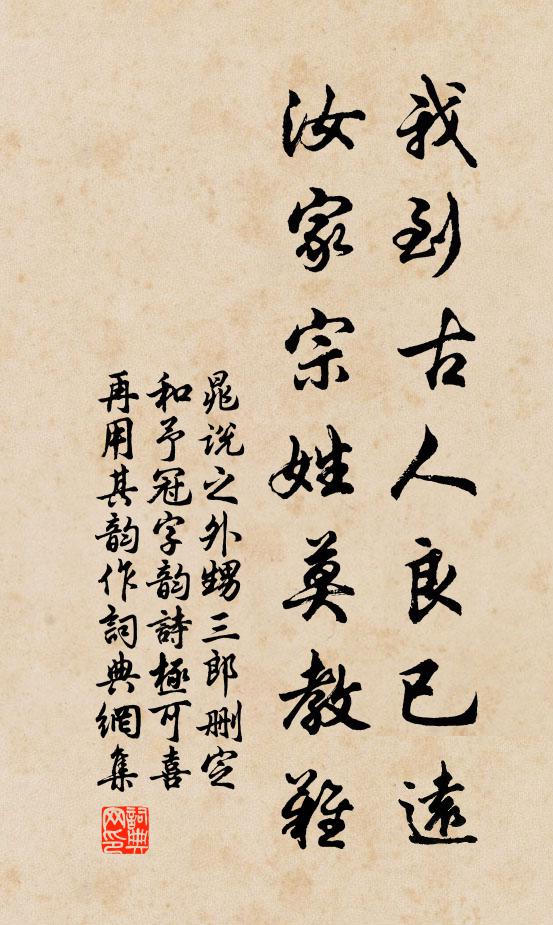 我到古人良已遠
汝家宗姓莫教難
晁說之外甥三郎刪定
和予冠字韵詩極可喜
再用其韵作詞典網集
詞典网印